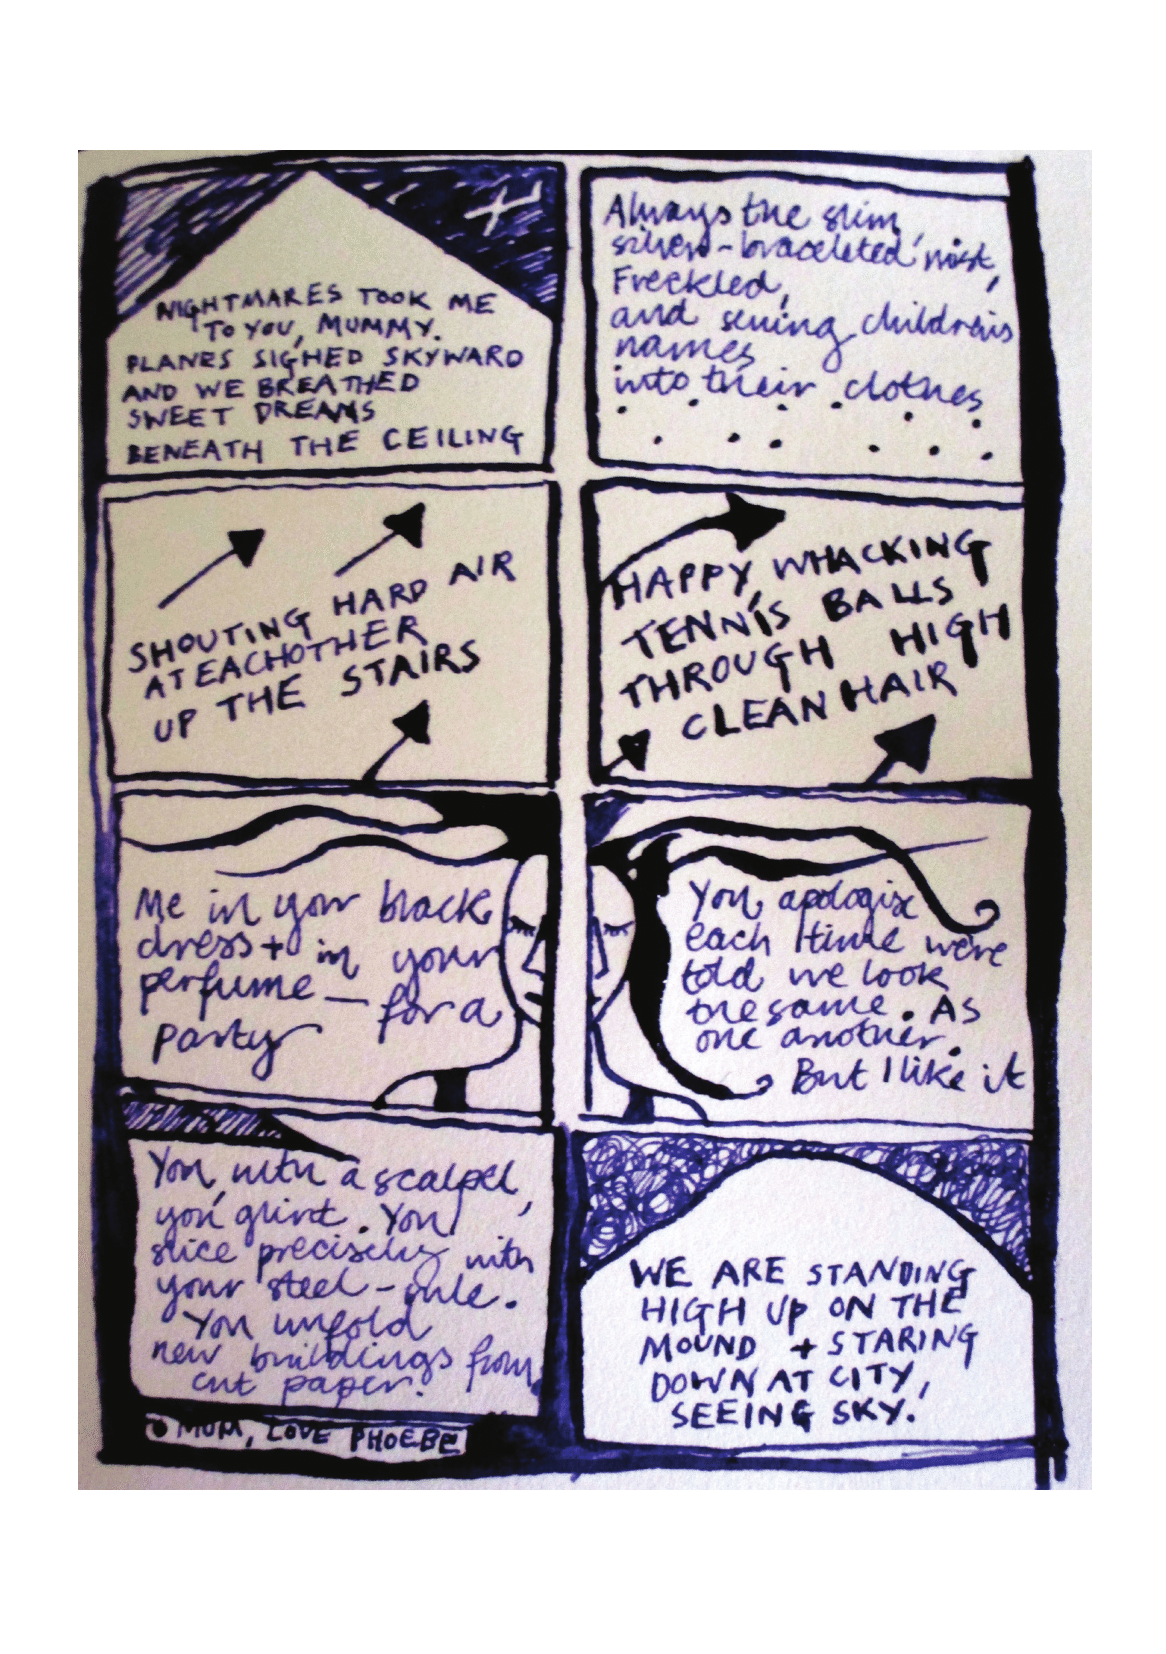 NIGHTMARES TOOK ME
TO YOU, MUMMY.
PLANES SIGHED SKYWARD
AND WE BREATHED
SWEET DREAMS
BENEATH THE CEILING
Always the slim,
silver-braceleted wrist,
Freckled,
and sewing children's
names
into their clothes
SHOUTING HARD AIR
AT EACHOTHER
UP THE STAIRS
HAPPY, WHACKING
TENNIS BALLS
THROUGH HIGH
CLEAN HAIR
Me in your black
dress + in your
perfume — for a
party
You apologise
each time we're
told we look
the same. As
one another.
But I like it
You, with a scalpel,
you glint. You
slice precisely with
your steel-rule.
You unfold
new buildings from
cut paper.
MUM, LOVE PHOEBE
WE ARE STANDING
HIGH UP ON THE
MOUND + STARING
DOWN AT CITY,
SEEING SKY.